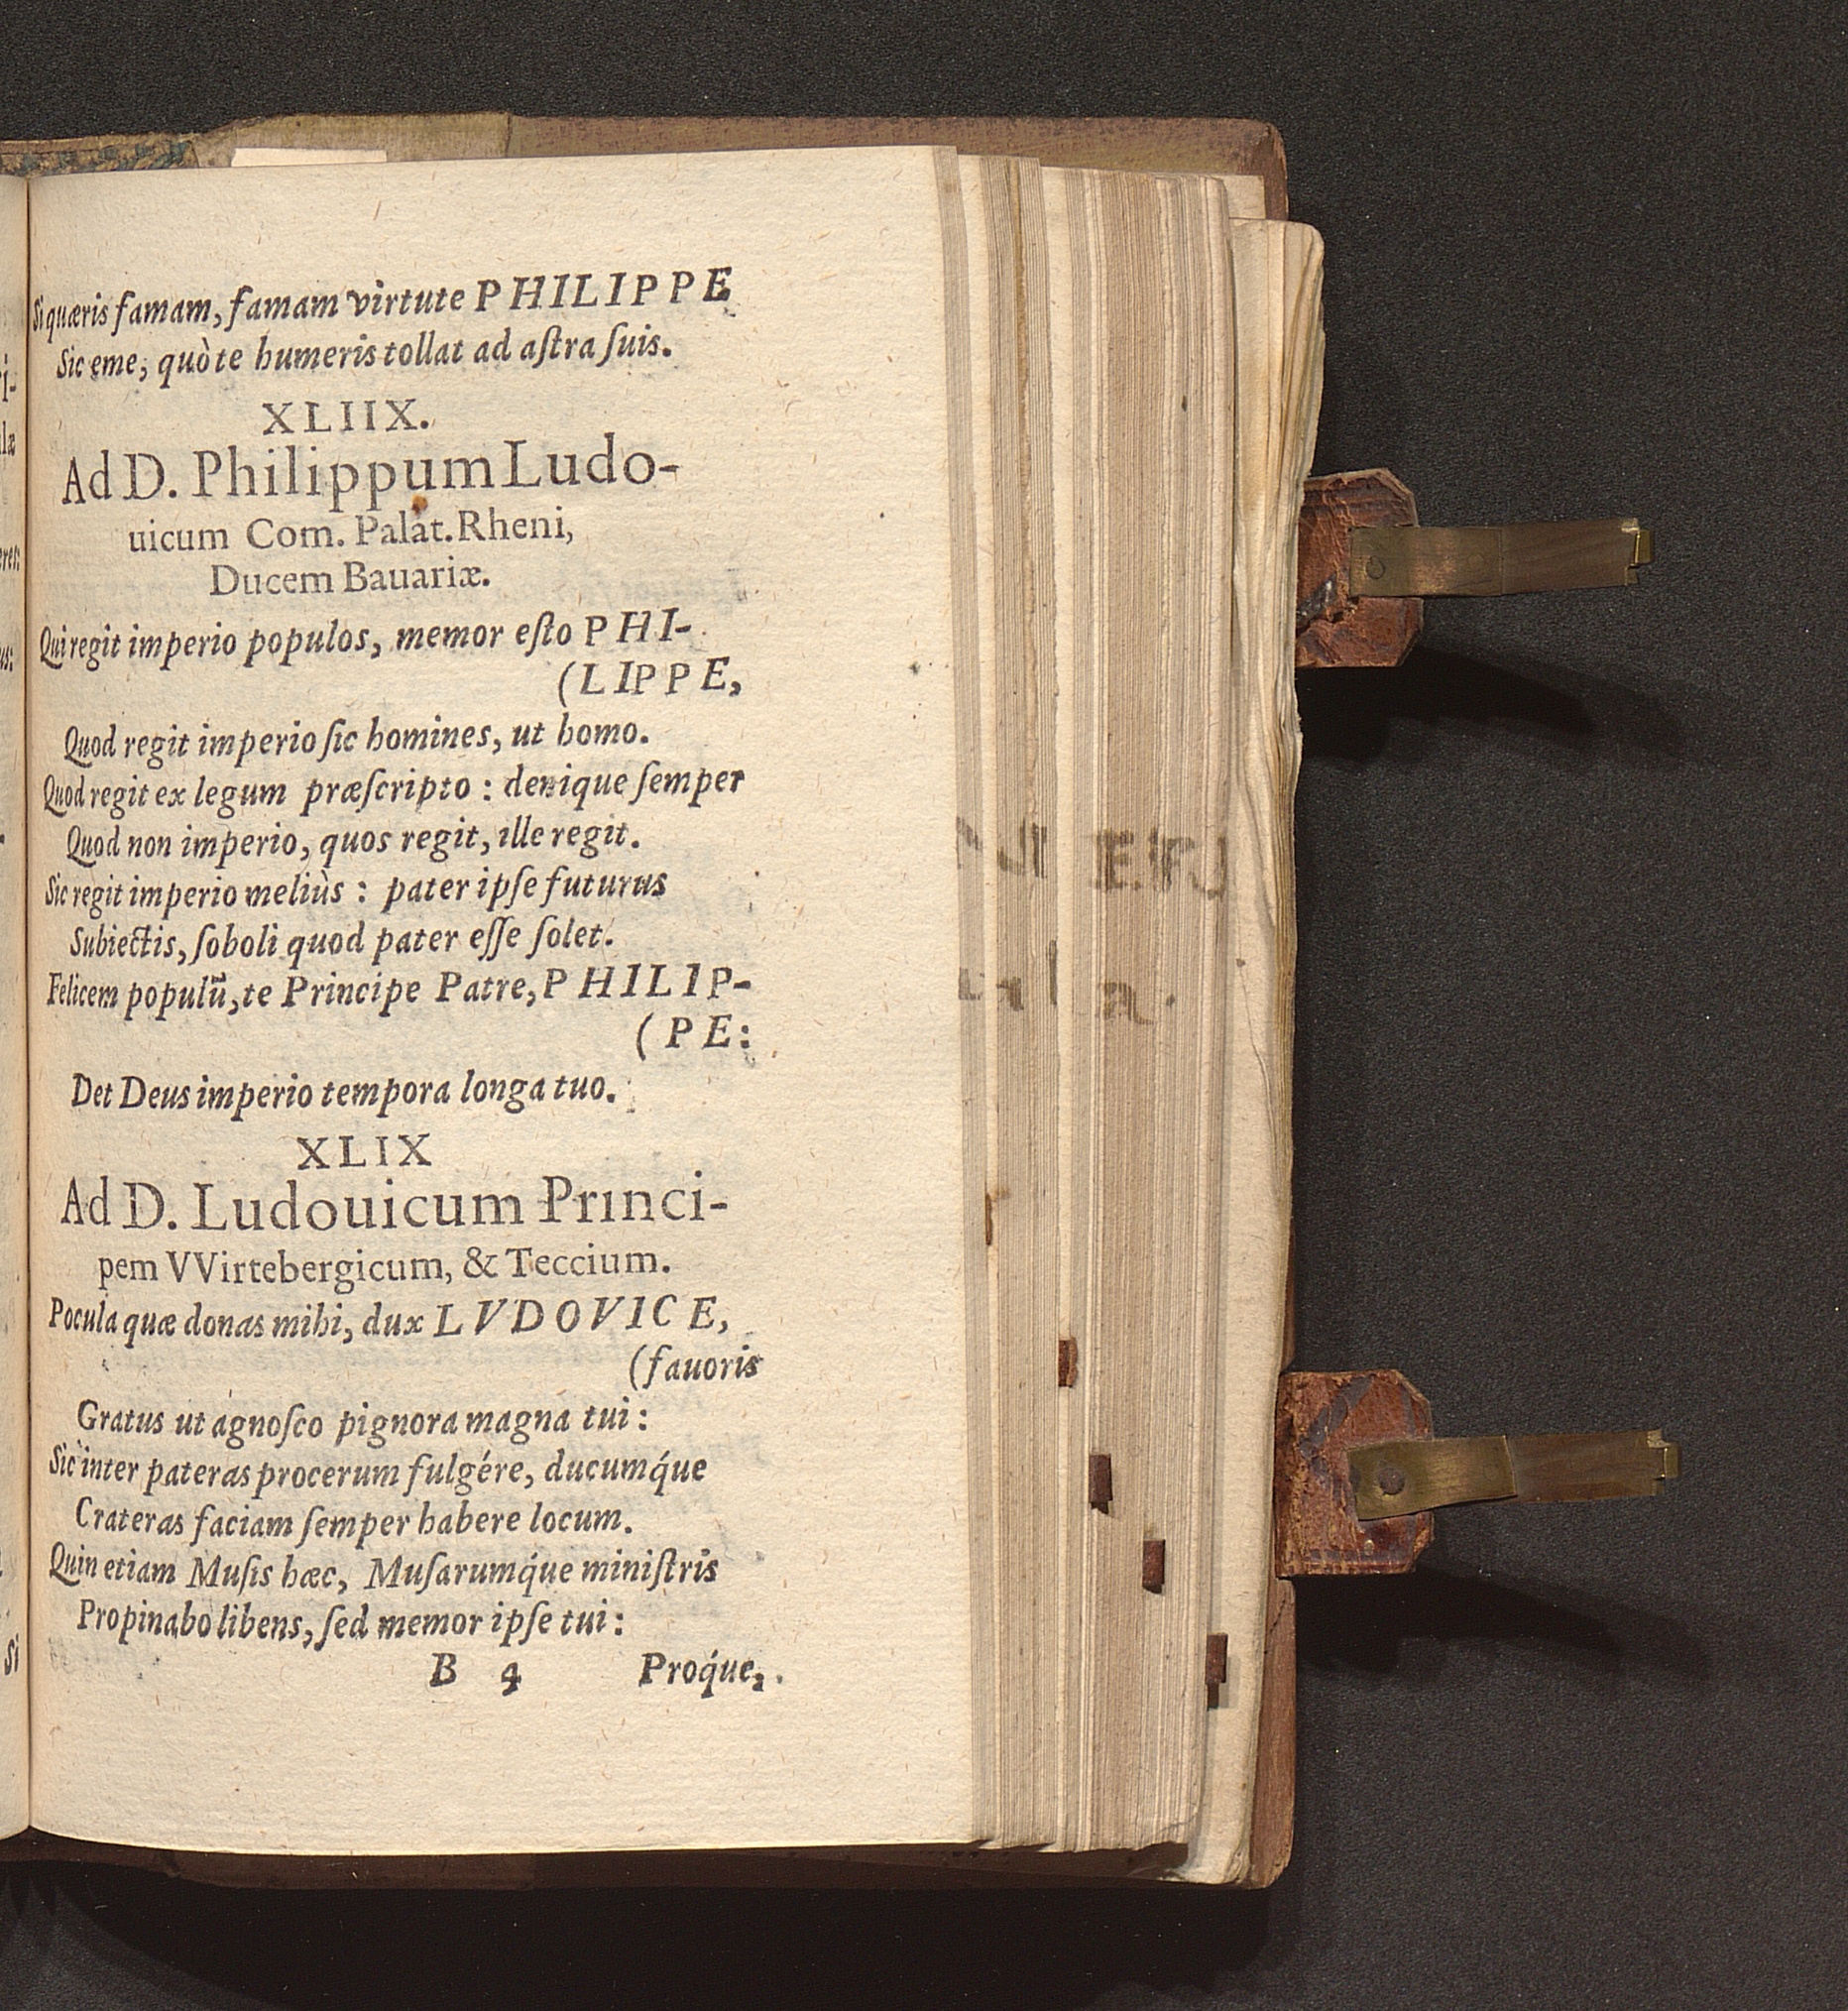 Si quæris famam, famam virtute PHILIPPE
Sic eme, quò te humeris tollat ad aſtra ſuis.
XLIIX.
Ad D. Philippum Ludo-
uicum Com. Palat. Rheni,
Ducem Bauariæ.
Qui regit imperio populos, memor eſto PHI-
(LIPPE,
Quod regit imperio ſic homines, ut homo.
Quod regit ex legum præſcripto : denique ſemper
Quod non imperio, quos regit, ille regit.
Sic regit imperio meliùs : pater ipſe futurus
Subiectis, ſoboli quod pater eſſe ſolet.
Felicem populũ, te Principe Patre, PHILIP-
(PE:
Det Deus imperio tempora longa tuo.
XLIX
Ad D. Ludouicum Princi-
pem VVirtebergicum, & Teccium.
Pocula quæ donas mihi, dux LVDOVICE,
(fauoris
Gratus ut agnoſco pignora magna tui :
Sic inter pateras procerum fulgére, ducumq́ue
Crateras faciam ſemper habere locum.
Quin etiam Muſis hæc, Muſarumq́ue miniſtris
Propinabo libens, ſed memor ipſe tui :
B 4 Proq́ue,